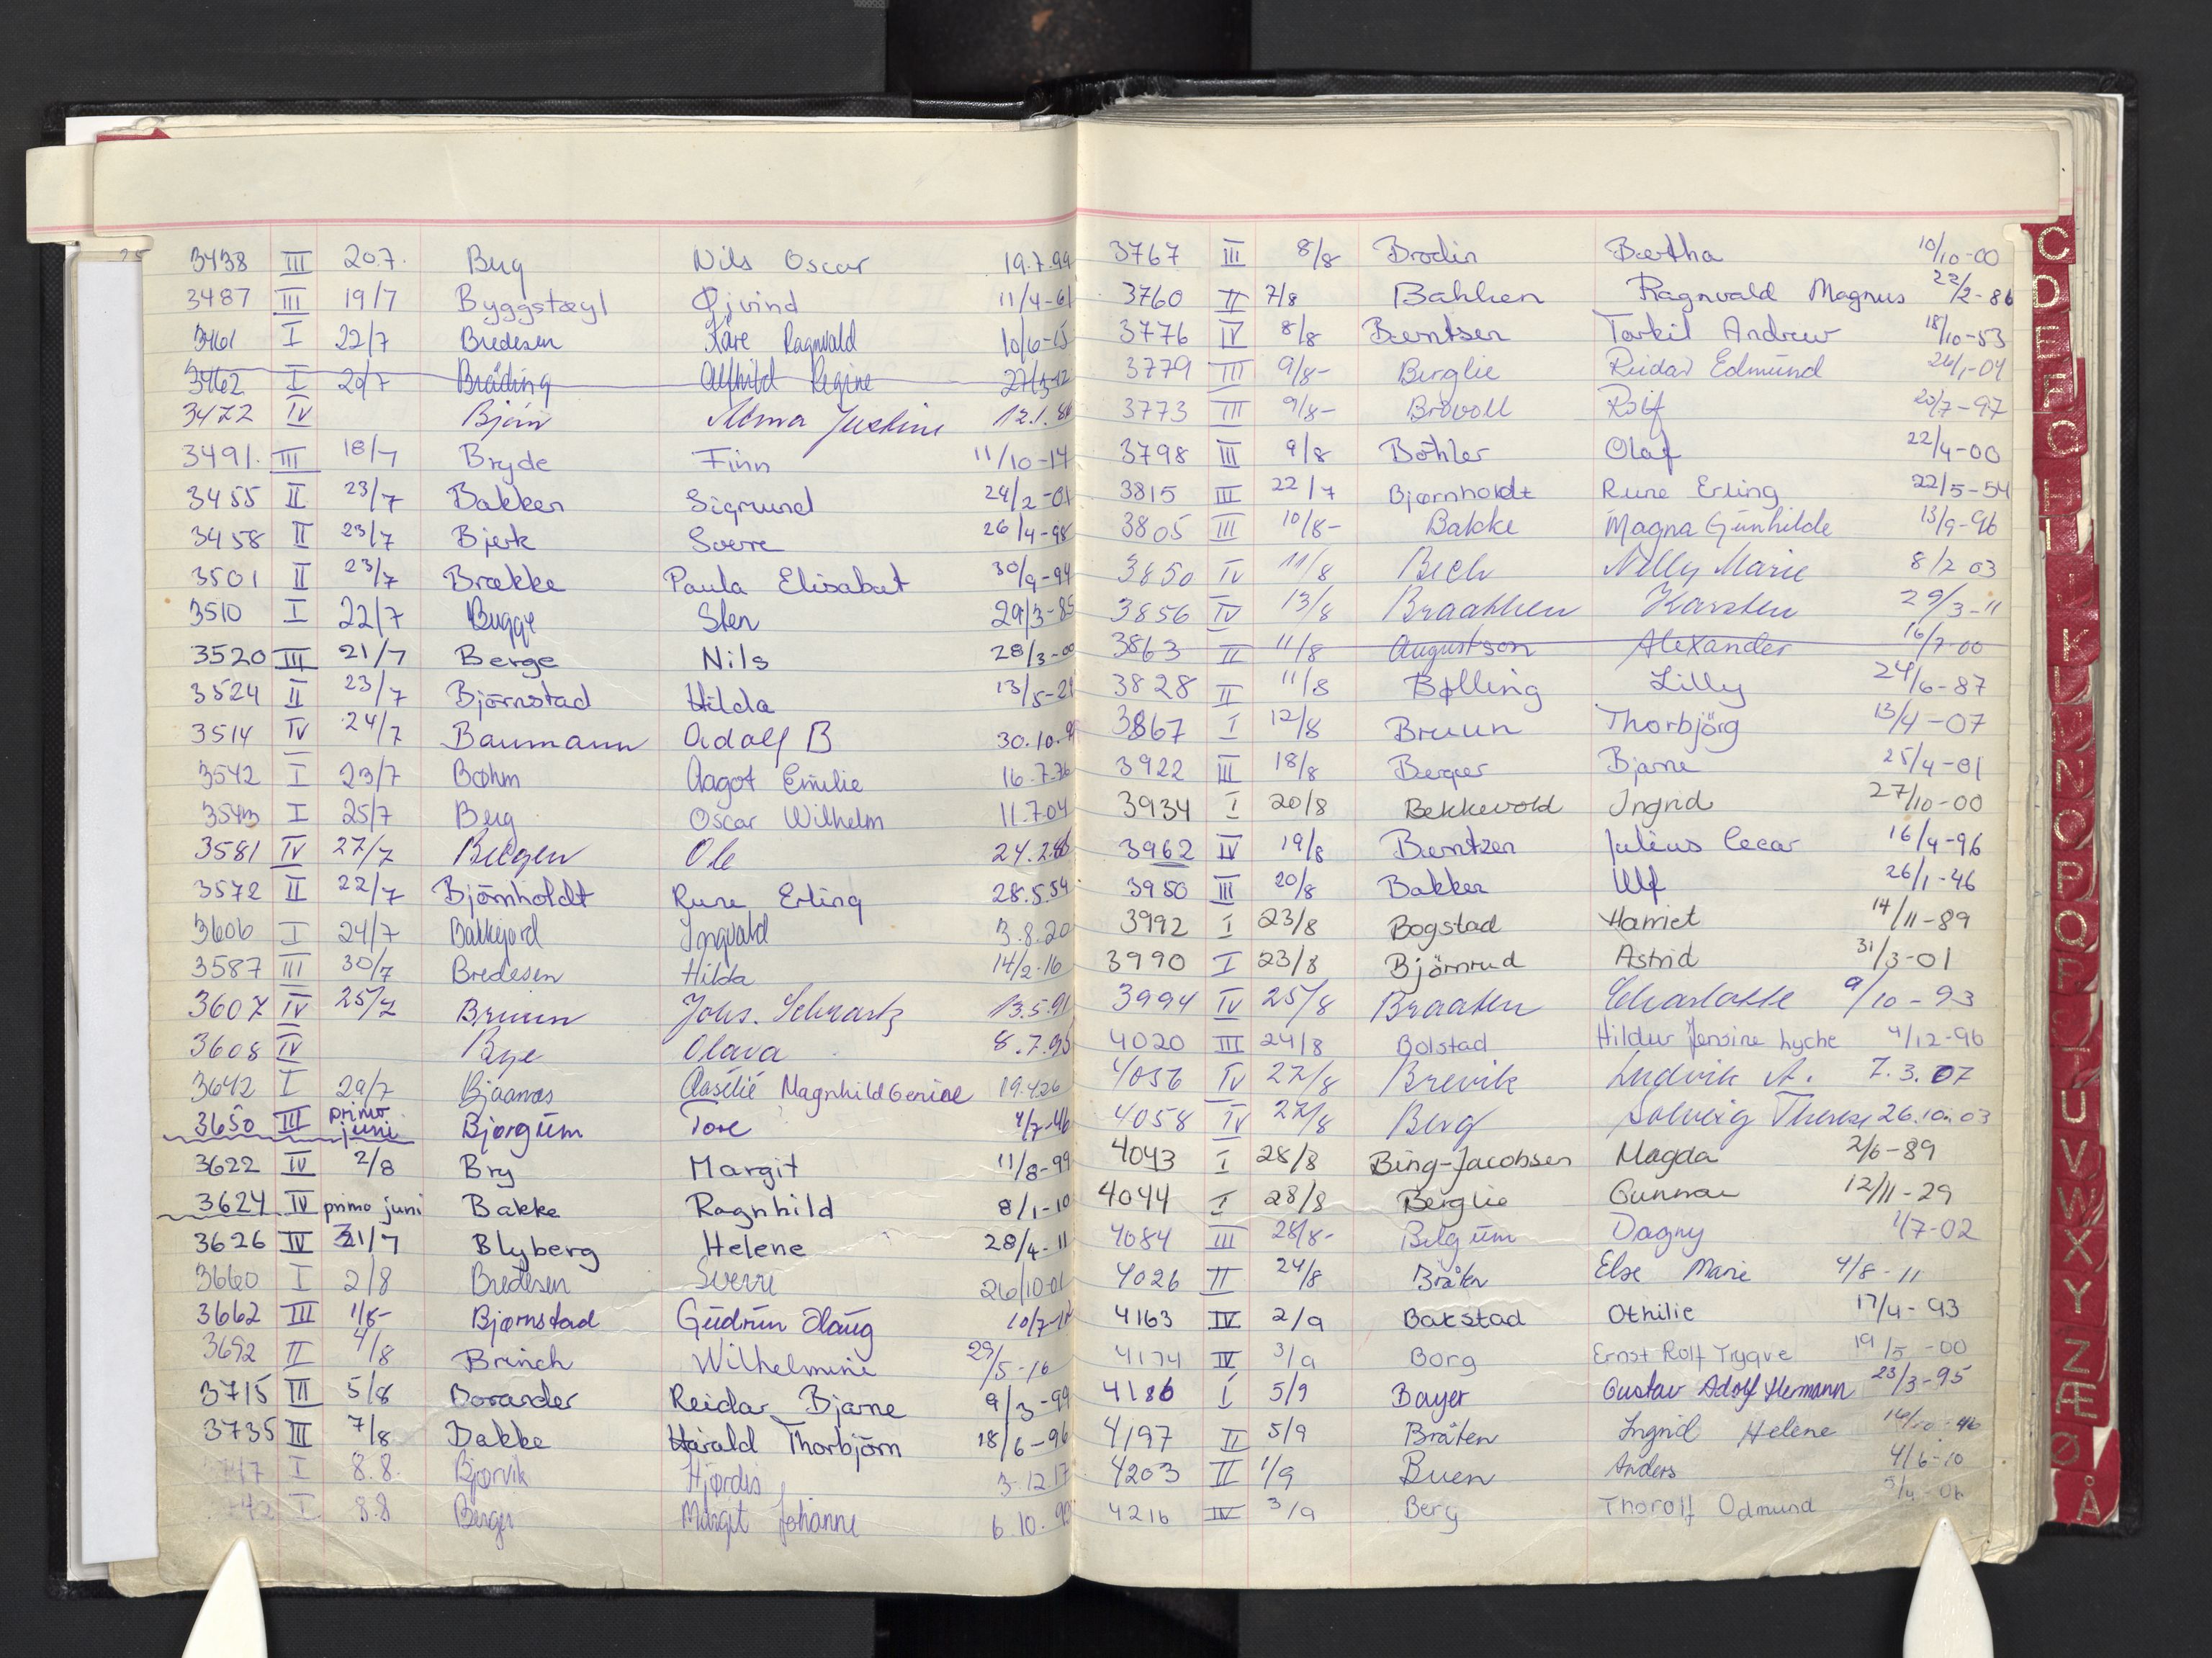 3438 III 20.7. Berg Nils Oscar 19.7.99
3487 III 19/7 Byggstøyl Øjvind 11/4-61
3461 I 22/7 Bredesen Kåre Ragnvald 10/6-15
3462 I 20/7 Bråding Alfhild Regine 27/3-12
3472 IV Bjørn Alma Justine 12.1.
3491. III 18/7 Bryde Finn 11/10-14
3455 II 23/7 Bakken Sigmund 24/2-01
3458 II 23/7 Bjerk Sverre 26/4-98
3501 II 23/7 Brække Paula Elisabet 30/9-94
3510 I 22/7 Bugge Sten 29/3-85
3520 III 21/7 Berge Nils 28/3-00
3524 II 23/7 Björnstad Hilda 13/5-21
3514 IV 24/7 Baumann Adolf B 30.10.
3542 I 23/7 Bøhm Aagot Emilie 16.7.
3543 I 25/7 Berg Oscar Wilhelm 11.7.04
3581 IV 27/7 Bergen Ole 24.2.
3572 II 22/7 Björnholdt Rune Erling 28.5.54
3606 I 24/7 Bakkejord Ingvald 3.8.20
3587 III 30/7 Bredesen Hilda 14/2-16
3607 IV 25/7 Bruun Johs. Schwartz 13.5.91
3608 IV Bye Olava 8.7.95
3642 I 29/7 Bjaanæs Aaselie Magnhild Gerine 19.4.26
3650 III primo juni Bjørgum Tore 4/7-46
3622 IV 2/8 Bry Margit 11/8-99
3624 IV primo juni Bakke Ragnhild 8/1-10
3626 IV 21/7 Blyberg Helene 28/4-11
3660 I 2/8 Bredesen Sverre 26/10-01
3662 III 1/8- Bjørnstad Gudrun Haug 10/7-
3692 II 4/8 Brinch Wilhelmine 29/5-16
3715 III 5/8 Borander Reidar Bjarne 9/3-99
3735 III 7/8 Bakke Harald Thorbjörn 18/6-96
47 I 8.8. Bjørvik Hjørdis 3.12.17
42 I 8.8 Berger Margit Johanne 6.10.
3767 III 8/8 Brodin Bertha 10/10-00
3760 II 7/8 Bakken Ragnvald Magnus 22/2-86
3776 IV 8/8 Berntsen Torkil Andrew 18/10-53
3779 III 9/8- Berglie Reidar Edmund 26/1-04
3773 III 9/8- Brovoll Rolf 20/7-97
3798 III 9/8 Böhler Olaf 22/4-00
3815 III 22/7 Bjørnholdt Rune Erling 22/5-54
3805 III 10/8- Bakke Magna Gunhilde 13/9-96
3850 IV 11/8 Bech Nelly Marie 8/2 03
3856 IV 13/8 Braathen Karsten 29/3-11
3863 II 11/8 Augustson Alexander 16/7-00
3828 II 11/8 Bølling Lilly 24/6-87
3867 I 12/8 Bruun Thorbjörg 13/4-07
3922 III 18/8 Berger Bjarne 25/4-01
3934 I 20/8 Bekkevold Ingrid 27/10-00
3962 IV 19/8 Berntzen Julius Cecar 16/4-96
3950 III 20/8 Bakken Ulf 26/1-46
3992 I 23/8 Bogstad Harriet 14/11-89
3990 I 23/8 Björnrud Astrid 31/3-01
3994 IV 25/8 Braaten Charlotte 9/10-93
4020 III 24/8 Bolstad Hildur Jensine Lyche 4/12-96
4056 IV 27/8 Brevik Ludvik A. 7.3.07
4058 IV 27/8 Berg Solveig Therese 26.10.03
4043 I 28/8 Bing-Jacobsen Magda 2/6-89
4044 I 28/8 Berglie Gunnar 12/11-29
4084 III 28/8- Belgum Dagny 1/7-02
4026 II 24/8 Bråten Else Marie 4/8-11
4163 IV 2/9 Bakstad Othilie 17/4-93
4174 IV 3/9 Borg Ernst Rolf Trygve 19/5-00
4186 I 5/9 Bayer Gustav Adolf Hermann 23/3-95
4197 II 5/9 Bråten Ingrid Helene
4203 II 1/9 Buen Anders 4/6-10
4216 IV 3/9 Berg Thorolf Odmund
C
D
E
F
G
H
I
J
K
L
M
N
O
P
Q
R
S
T
U
V
W
X
Y
Z
Æ
Ø
Å